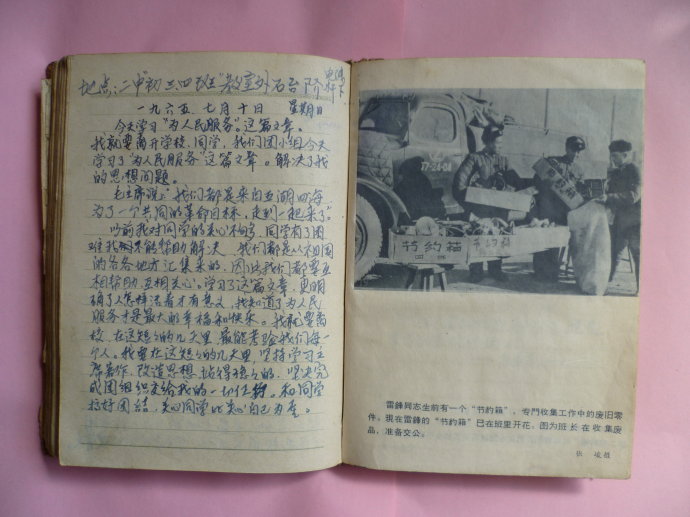 地点:二中初三四班"教室外石台阶
电灯杆下
一九六五、七月十日 星期日
今天学习"为人民服务"。这篇文章。
我就要离开学校、同学,我们团小组今天
学习了"为人民服务"这篇文章。解决了我
的思想问题。
毛主席说:"我们都是来自五湖四海
为了一个共同的革命目标,走到一起来了"
以前我对同学的关心不够,同学有了困
难我不能帮助解决、我们都是从祖国
的各各地方汇集来的,因此我们都要互
相帮助,互相关心,学习了这篇文章,更明
确了人怎样活着才有意义,我知道了为人民
服务才是最大的幸福和快乐。我就要离
校、在这短々的几天里,最能考验我们每一
个人。我要在这短々的几天里,坚持学习主
席著作、改造思想,坚决完
成团组织交给我的一切任务。和同学
搞好团结,关心同学比关心自己为重。
77-24-01
节約箱
节約箱
节約箱
四班
雷鋒同志生前有一个"节約箱",专門收集工作中的废旧零
件。现在雷鋒的"节約箱"已在班里开花。图为班长在收集废
品,准备交公。
张峻摄